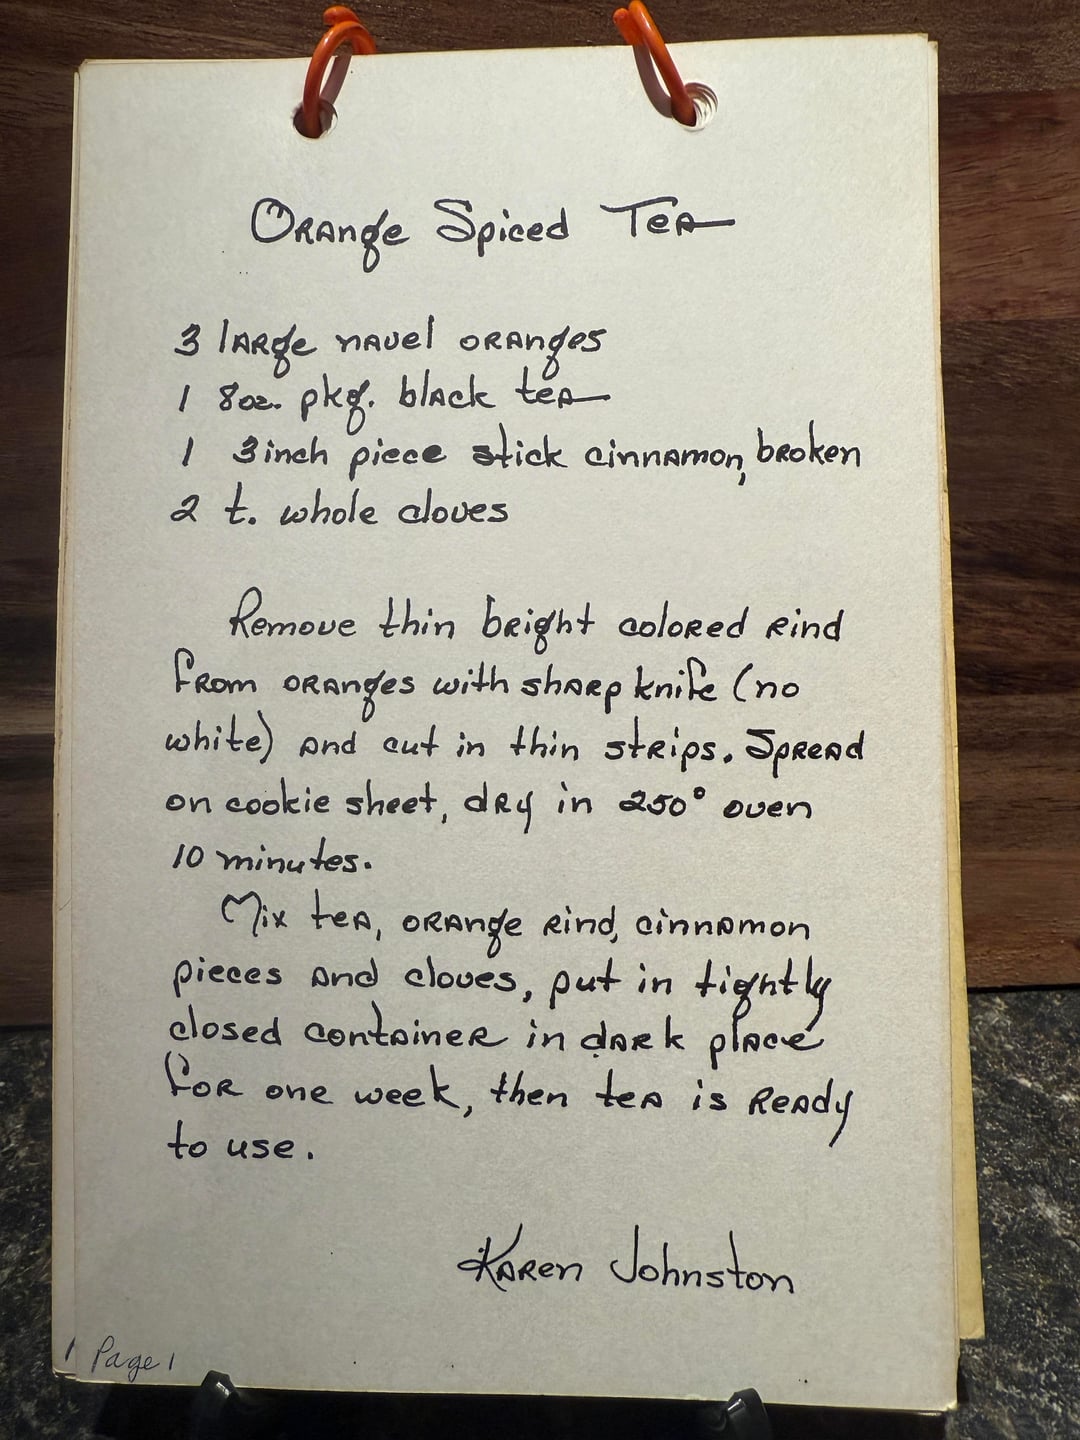 Orange Spiced Tea
3 large navel oranges
1 8oz. pkg. black tea
1 3inch piece stick cinnamon, broken
2 t. whole cloves
Remove thin bright colored rind
from oranges with sharp knife (no
white) and cut in thin strips. Spread
on cookie sheet, dry in 250° oven
10 minutes.
Mix tea, orange rind, cinnamon
pieces and cloves, put in tightly
closed container in dark place
for one week, then tea is ready
to use.
Karen Johnston
1 Page 1